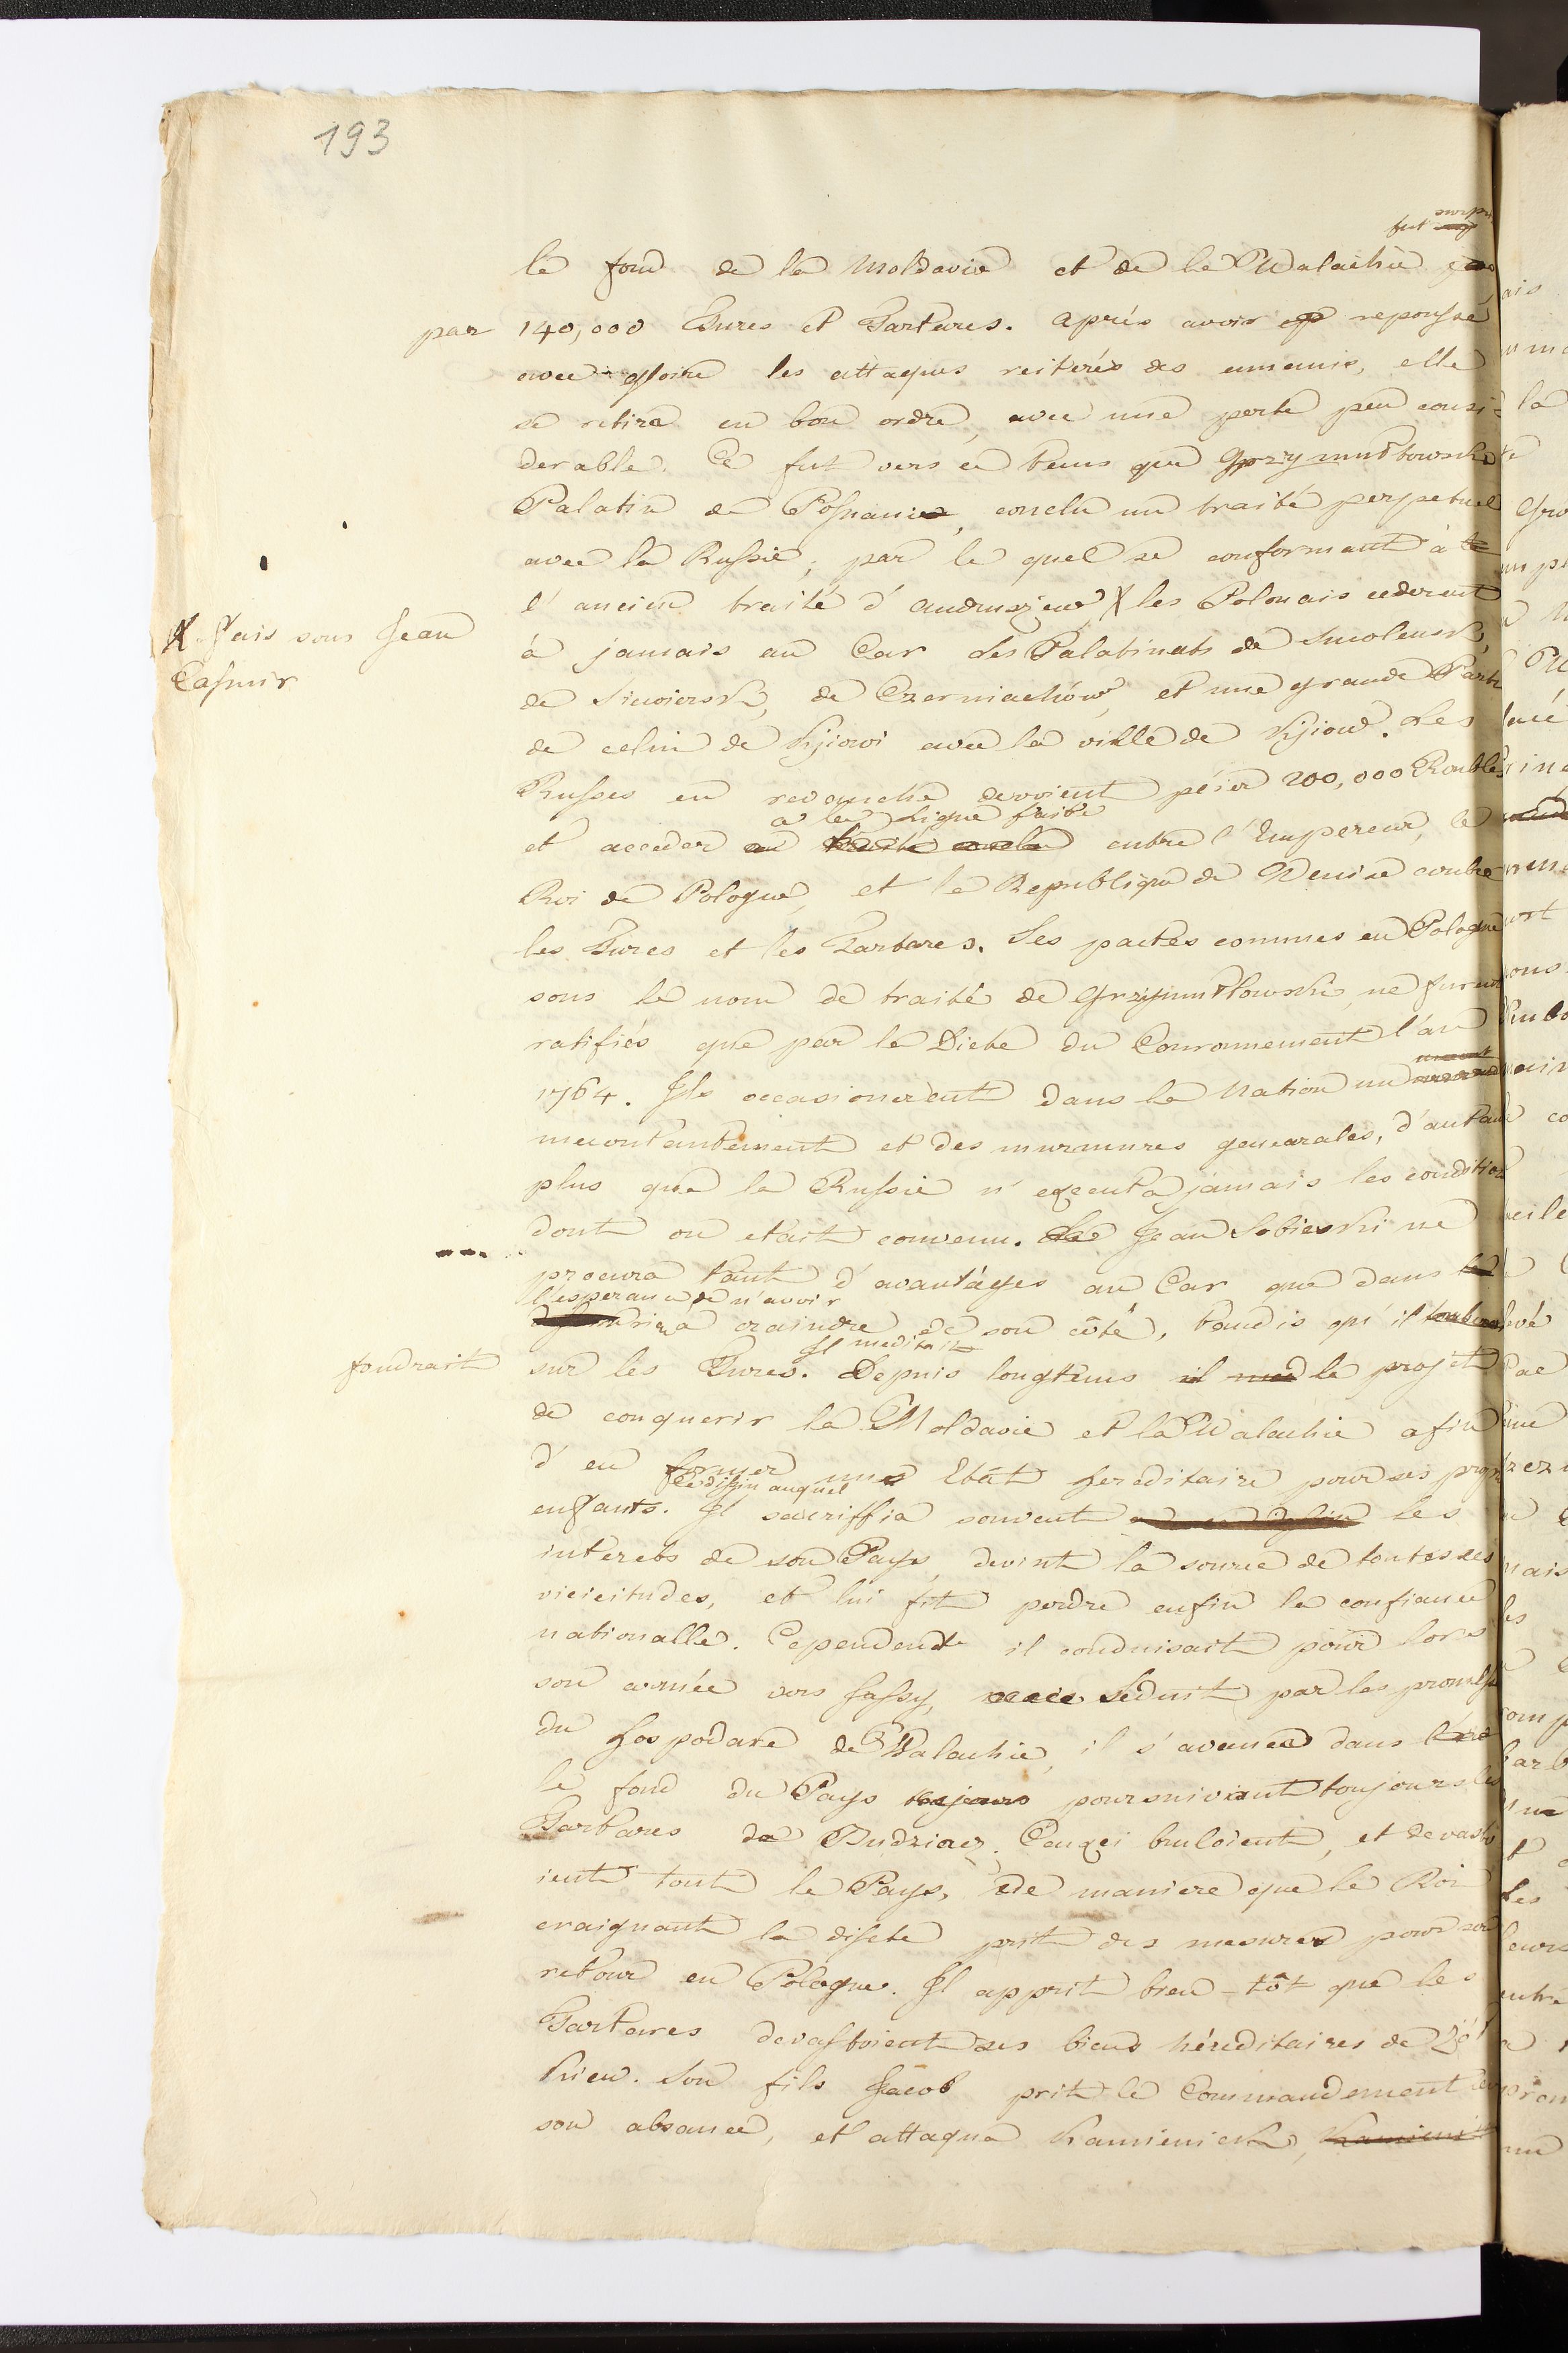 193
fut surprise
le fond de la Moldavie et de la Walachie
par 140,000 Turcs et Tartares. Aprés avoir repoussé
avec gloire les attaques reiterés des ennemis, elle
se retira en bon ordre, avec une perte peu consi-
derable. Ce fut vers ce tems que Grzymultowski
Palatin de Posnanie, conclu un traité perpetuel
avec la Russie, par le quel se conformant à
l'ancien traité d'Andruszow X les Polonais cederent
X fais sous Jean
Casimir
à jamais au Car les Palatinats de Smolensk,
de Siewiersk, de Czerniachów, et une grande Partie
de celui de Kijowi avec la ville de Kijow. Les
Russes en revanche devoient péier 200,000 Roubles
à la Ligue faite
et acceder au traité conclu entre l'Empereur, le
Roi de Pologne, et la Republique de Venise contre
les Turcs et les Tartares. Ses pactes connues en Pologne
sous le nom de traité de Grzymultowski, ne furent
ratifiés que par la Diete du Couronnement l'an
1764. Ils occasionerent dans la Nation un
mecontantement et des murmures genearales, d'autant
plus que la Russie n'executa jamais les condition
dont on etait convenu. Jean Sobieski ne
procura tant d'avantâges au Car que dans
l'esperance de n'avoir
rien à craindre de son côté, tandis qu'il tombera
Il meditait
foudrait sur les Turcs. Depuis longtems il med le projet
de conquerir la Moldavie et la Walachie afin
d'en former une Etât hereditaire pour ses propr
Ce dessin auquel
enfants. Il sacriffia souvent les
interets de son Pays, devint la source de toutes ses
vicicitudes, et lui fit perdre enfin la confiance
nationalle. Cependent il conduisait pour lors
son armée vers Jassy, Séduit par les promesse
du Hospodare de Walachie, il s'avancea dans
le fond du Pays toujours poursuiviant toujours les
Tartares de Budziacz. Ceuxci bruloient, et devasto
ient tout le Pays, de maniere que le Roi
craignant la disete prit des mesures pour son
retour en Pologne. Il apprit bien-tôt que les
Tartares devastoient ses biens héreditaires de Zół
kiew. Son fils Jacob prit le Commandement en
son absance, et attaqua Kamieniek, Kamieni